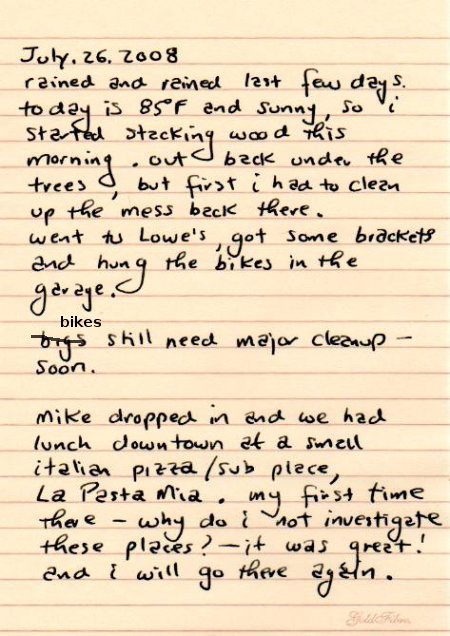 July. 26. 2008
rained and rained last few days.
today is 85°F and sunny, so i
started stacking wood this
morning. out back under the
trees, but first i had to clean
up the mess back there.
went to Lowe's, got some brackets
and hung the bikes in the
garage.
bikes
still need major cleanup –
soon.
mike dropped in and we had
lunch downtown at a small
italian pizza/sub place,
La Pasta Mia. my first time
there – why do i not investigate
these places? – it was great!
and i will go there again.
Gold Fibre